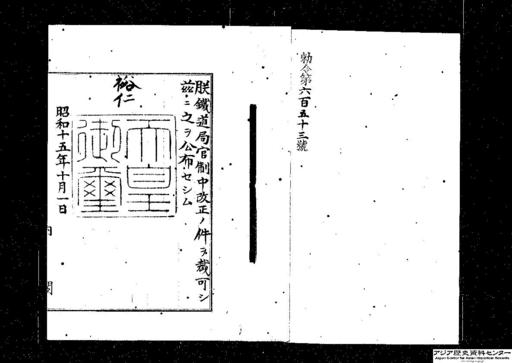 勅令第六百五十三號
朕鐵道局官制中改正ノ件ヲ裁可シ
茲ニ之ヲ公布セシム
裕仁
天皇
御璽
昭和十五年十月一日
内閣
アジア歴史資料センター
Japan Center for Asian Historical Records